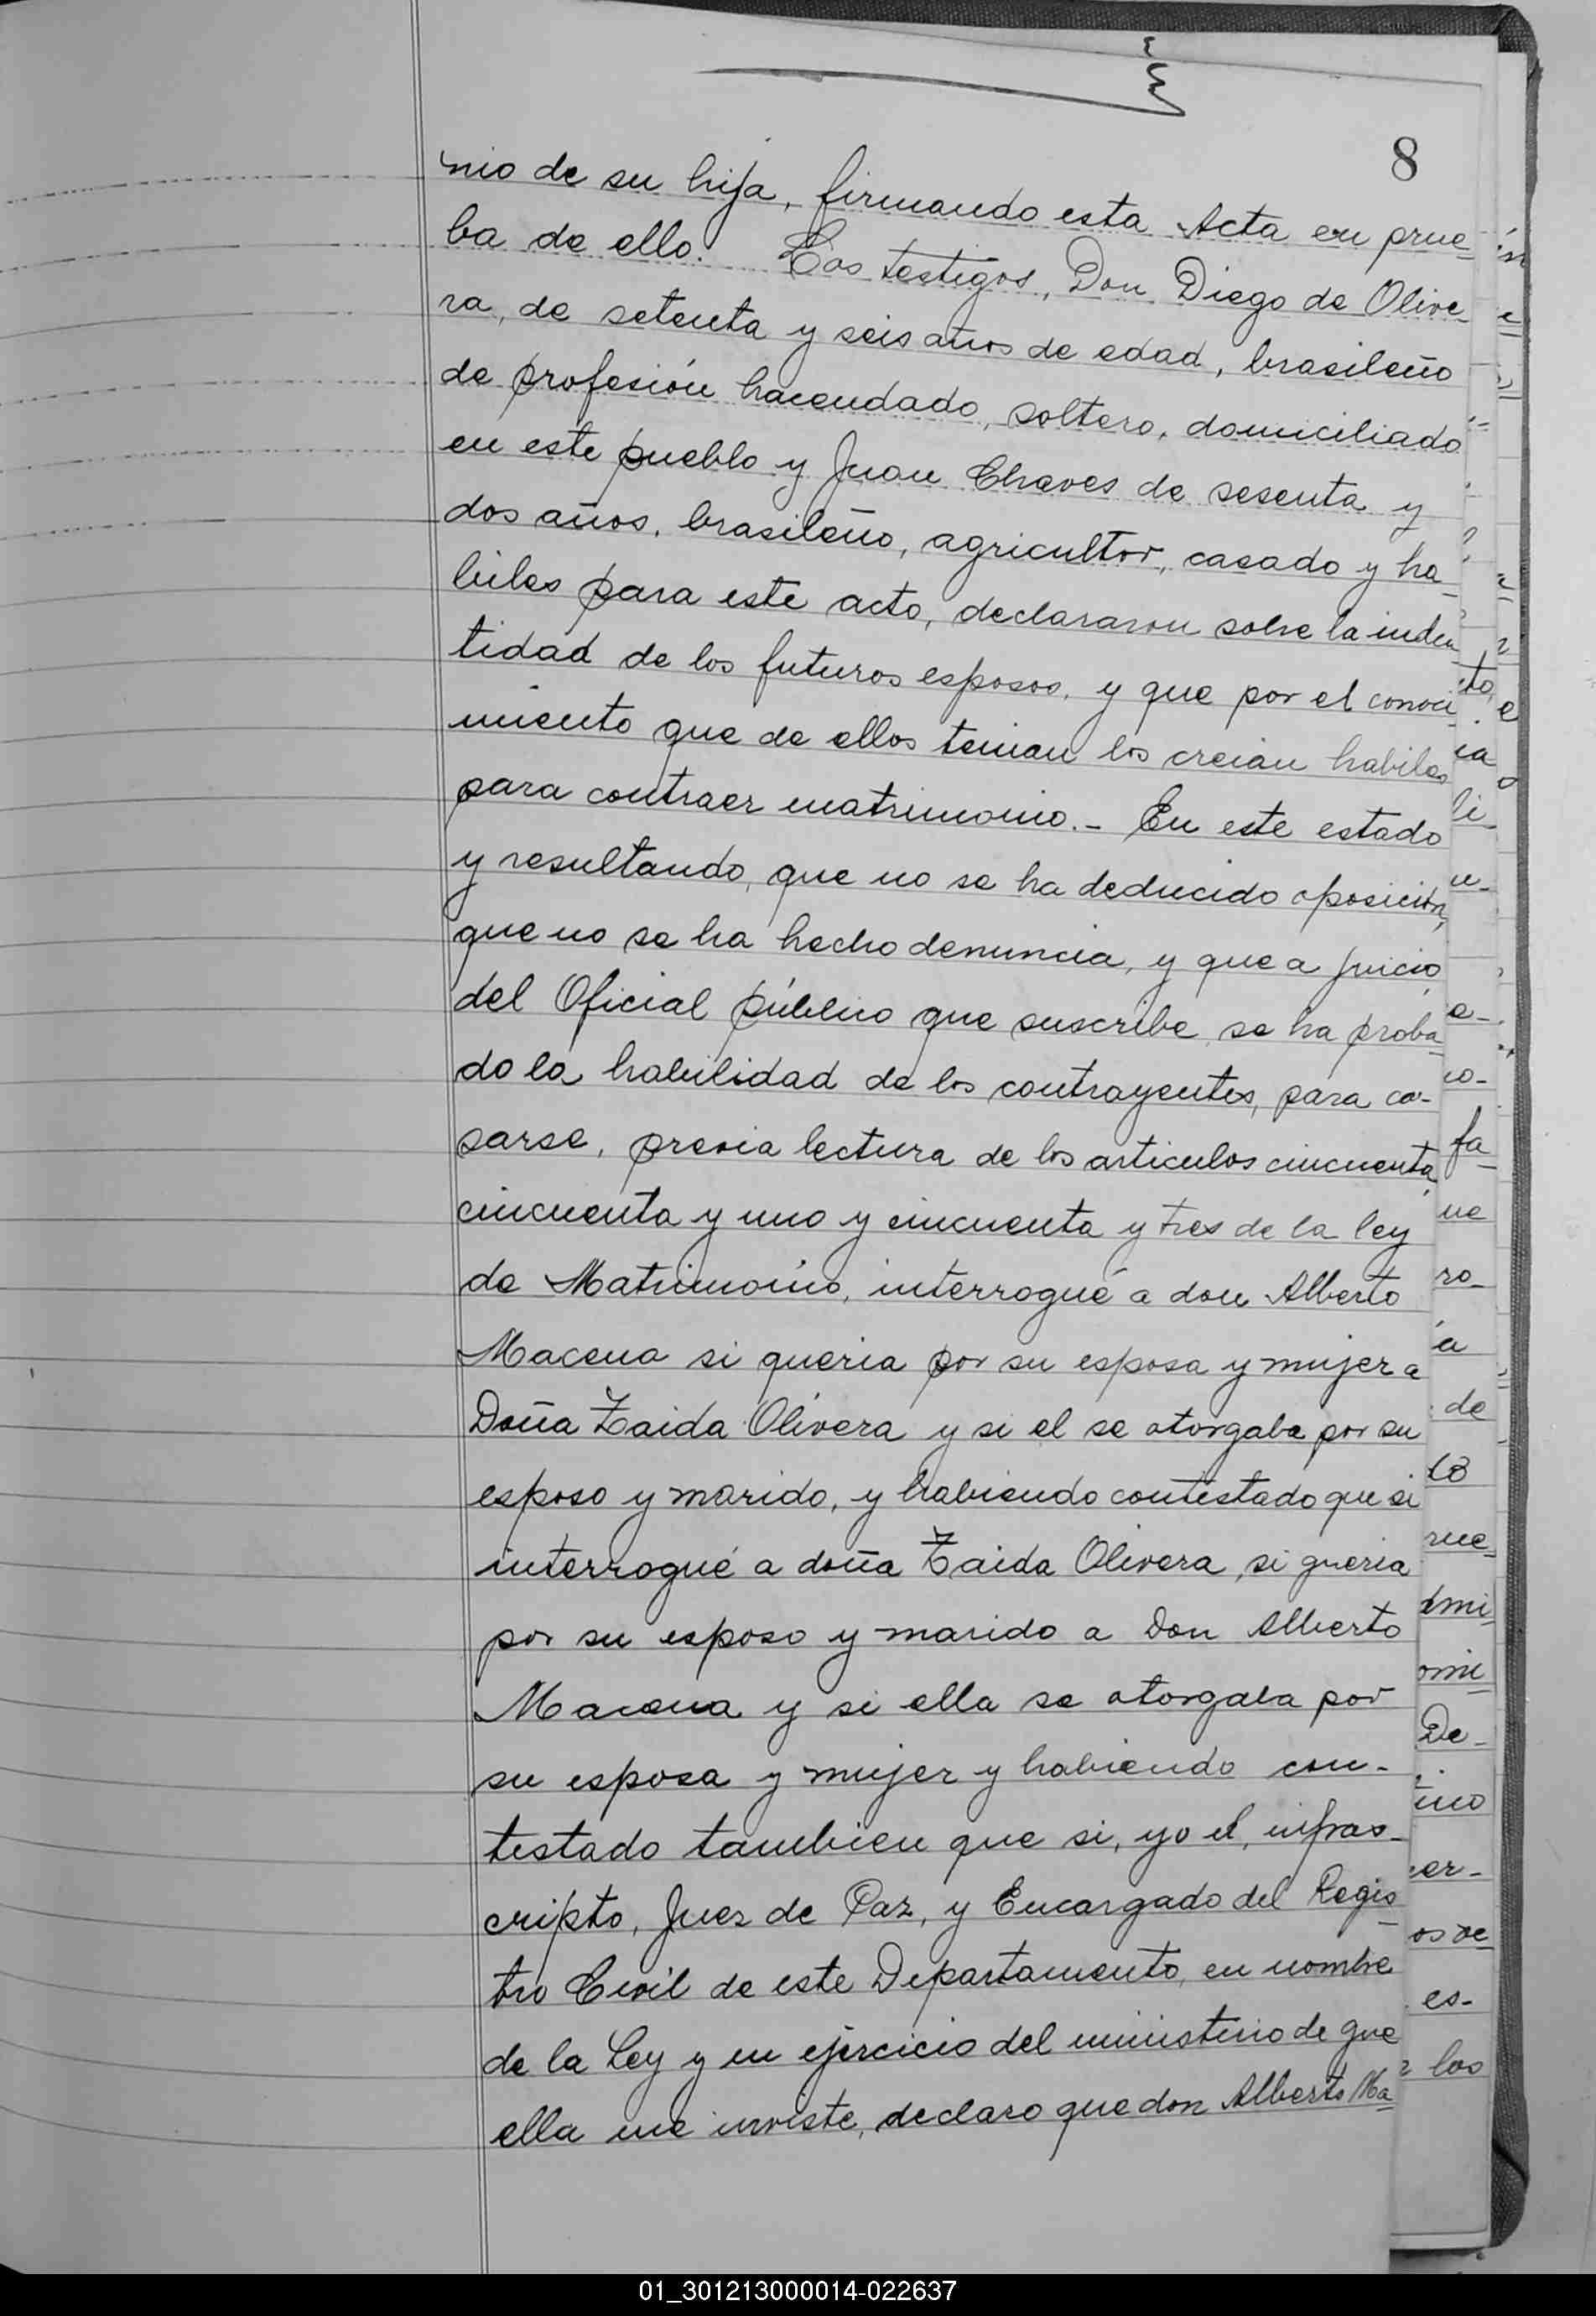 8
nio de su hija, firmando esta Acta en prue-
ba de ello. Los testigos, Don Diego de Olive-
ra, de setenta y seis años de edad, brasileño
de profesión hacendado, soltero, domiciliado
en este pueblo y Juan Chaves de sesenta y
dos años, brasileño, agricultor, casado y ha-
biles para este acto, declararon sobre la inden
tidad de los futuros esposos, y que por el conoci
miento que de ellos tenian los creian habiles
para contraer matrimonio.- En este estado
y resultando, que no se ha deducido oposición,
que no se ha hecho denuncia, y que a juicio
del Oficial público que suscribe, se ha proba-
do la habilidad de los contrayentes, para ca-
sarse, previa lectura de los articulos cincuenta,
cincuenta y uno y cincuenta y tres de la ley
de Matrimonio, interrogué a don Alberto
Macena si queria por su esposa y mujer a
Doña Zaida Olivera y si el se otorgaba por su
esposo y marido, y habiendo contestado que si
interrogué a doña Zaida Olivera, si queria
por su esposo y marido a Don Alberto
Macena y si ella se otorgaba por
su esposa y mujer y habiendo con-
testado tambien que si, yo el, infras-
cripto, Juez de Paz, y Encargado del Regis-
tro Civil de este Departamento, en nombre
de la Ley y en ejercicio del ministerio de que
ella me inviste, declaro que don Alberto Ma-
01_301213000014-022637